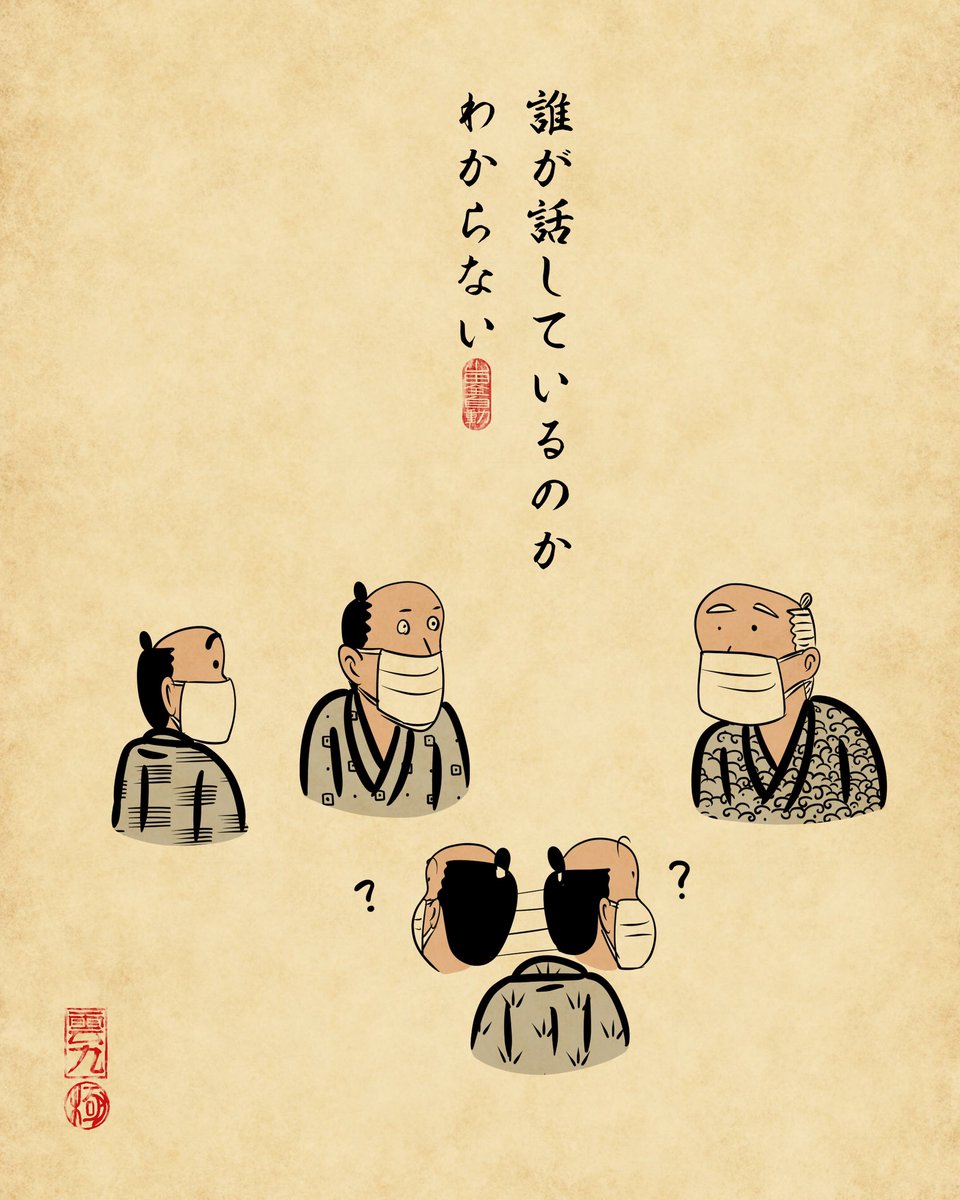 誰が話しているのか
わからない
?
?